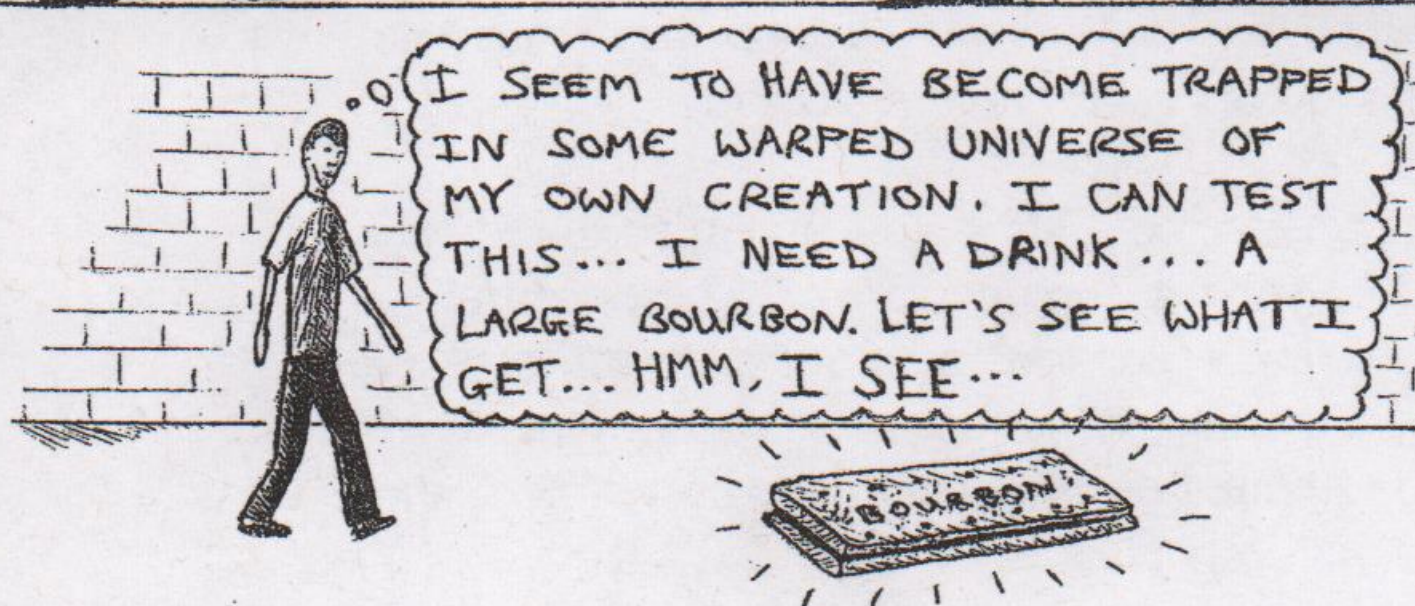 I SEEM TO HAVE BECOME TRAPPED
IN SOME WARPED UNIVERSE OF
MY OWN CREATION. I CAN TEST
THIS... I NEED A DRINK... A
LARGE BOURBON. LET'S SEE WHAT I
GET... HMM, I SEE...
BOURBON